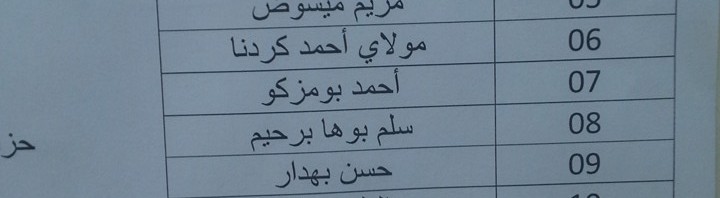 مريم ميسوض 05
مولاي أحمد كردنا 06
أحمد بومزكو 07
سلم بوها برحيم 08
حز
حسن بهدار 09